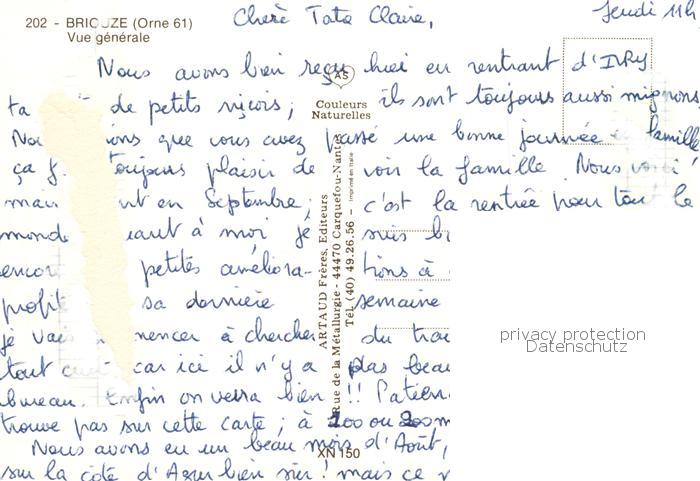 202 - BRIOUZE (Orne 61)
Vue générale
Cherè Tata Claire,
Jeudi 11h
Nous avons bien reçu hier en rentrant d'IVRY
ta de petits niçois; ils sont toujours aussi mignons
que vous avez passé une bonne journée en famille
ça toujours plaisir de voir la famille. Nous
en Septembre; c'est la rentrée pour tout le
monde quant à moi je suis
petites améliora- tions à
sa dernière semaine
je vais à chercher du
tout car ici il n'y a plas
bureau. Enfin on verra bien !!
trouve pas sur cette carte; à 200 ou
Nous avons eu un beau mois d'Août,
sur la côte d'Azur bien sûr! mais ce
AS
Couleurs
Naturelles
ARTAUD Frères, Editeurs
Rue de la Métallurgie - 44470 Carquefou-Nantes
Tél. (40) 49.26.56 - Imprimé en Italie
XN 150
privacy protection
Datenschutz